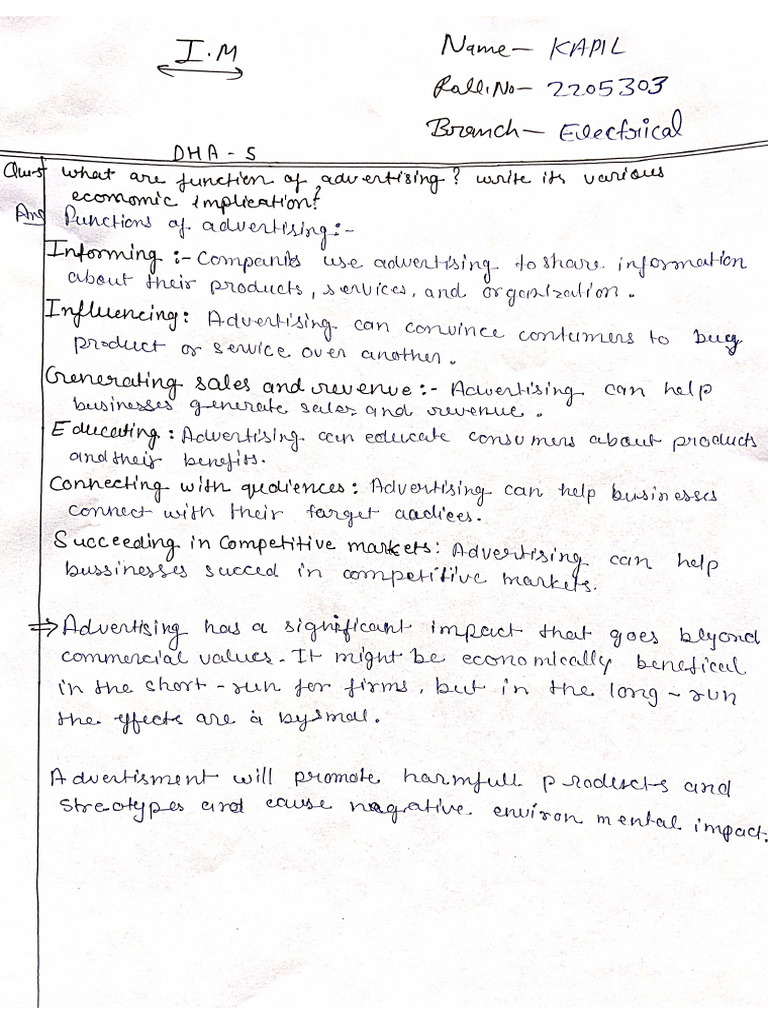 I.M
Name- KAPIL
Roll.No- 2205303
Branch- Electrical
DHA-5
Ques what are function of advertising? write its various
economic implication?
Ans Functions of advertising:-
Informing :- Companies use advertising to share information
about their products, services, and organization.
Influencing: Advertising can convince contumers to buy
product or service over another.
Generating sales and revenue:- Advertising can help
businesses generate sales and revenue.
Educating: Advertising can educate consumers about products
and their benefits.
Connecting with audiences: Advertising can help businesses
connect with their target aadices.
Succeeding in competitive markets: Advertising can help
bussinesses succed in competitive markets.
⇒ Advertising has a significant impact that goes beyond
commercial values. It might be economically benefical
in the short-run for firms, but in the long-run
the effects are a bysmall.
Advertisment will promote harmfull products and
streotypes and cause nagative environmental impact.